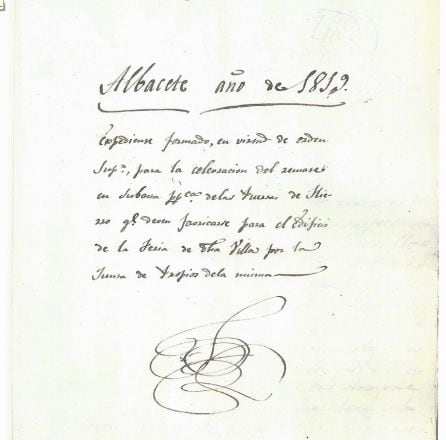 Albacete año de 1819.
Expediente formado, en virtud de orden
Supr., para la celebracion del remate
en Subasta ppca. de las Puertas de Hie
rro qe. deven fabricarse para el Edificio
de la Feria de dha Villa por la
Junta de Propios de la misma